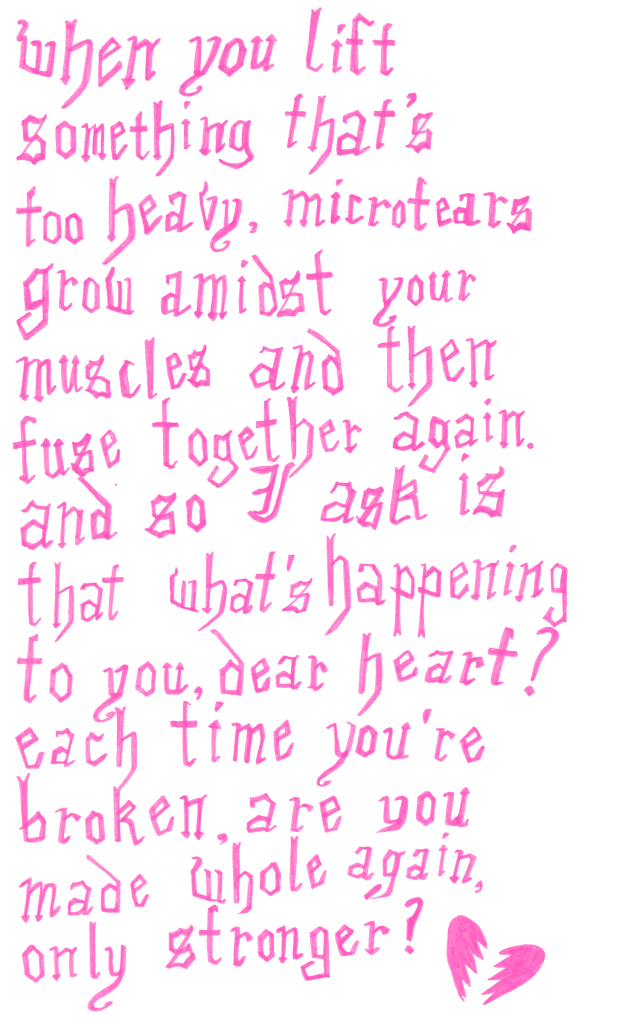 when you lift
something that's
too heavy, microtears
grow amidst your
muscles and then
fuse together again.
and so I ask is
that what's happening
to you, dear heart?
each time you're
broken, are you
made whole again,
only stronger?